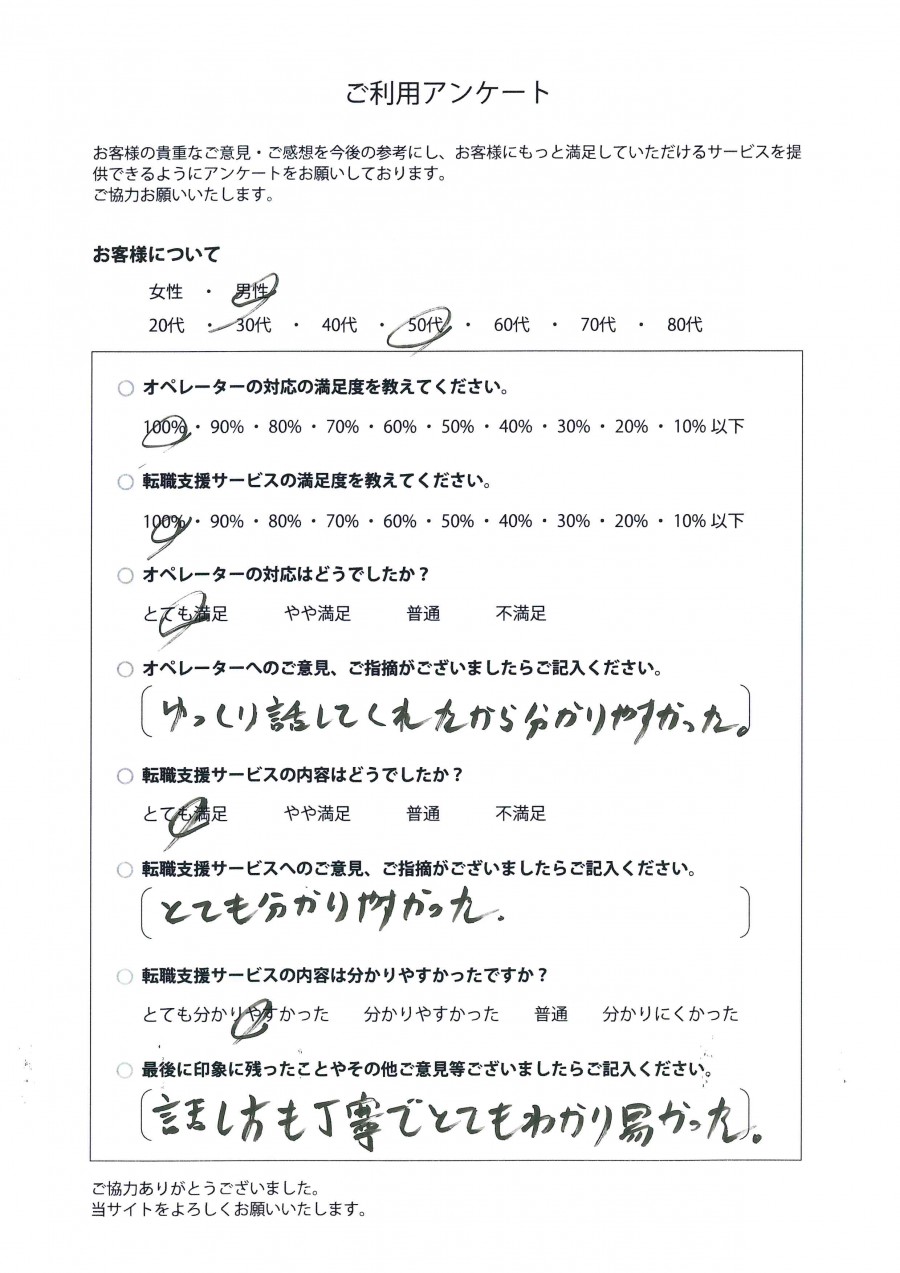 ご利用アンケート
お客様の貴重なご意見・ご感想を今後の参考にし、お客様にもっと満足していただけるサービスを提
供できるようにアンケートをお願いしております。
ご協力お願いいたします。
お客様について
女性 ・ 男性
20代 ・ 30代 ・ 40代 ・ 50代 ・ 60代 ・ 70代 ・ 80代
○ オペレーターの対応の満足度を教えてください。
100% ・ 90% ・ 80% ・ 70% ・ 60% ・ 50% ・ 40% ・ 30% ・ 20% ・ 10% 以下
○ 転職支援サービスの満足度を教えてください。
100% ・ 90% ・ 80% ・ 70% ・ 60% ・ 50% ・ 40% ・ 30% ・ 20% ・ 10% 以下
○ オペレーターの対応はどうでしたか？
とても満足 やや満足 普通 不満足
○ オペレーターへのご意見、ご指摘がございましたらご記入ください。
ゆっくり話してくれたから分かりやすかった。
○ 転職支援サービスの内容はどうでしたか？
とても満足 やや満足 普通 不満足
○ 転職支援サービスへのご意見、ご指摘がございましたらご記入ください。
とても分かりやすかった.
○ 転職支援サービスの内容は分かりやすかったですか？
とても分かりやすかった 分かりやすかった 普通 分かりにくかった
○ 最後に印象に残ったことやその他ご意見等ございましたらご記入ください。
話し方も丁寧でとてもわかり易かった。
ご協力ありがとうございました。
当サイトをよろしくお願いいたします。